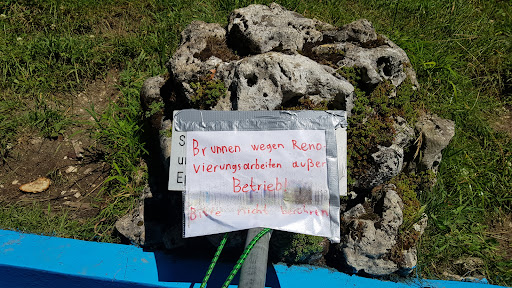 Brunnen wegen Reno-
vierungsarbeiten außer
Betrieb!
Bitte nicht berühren
S
u
E